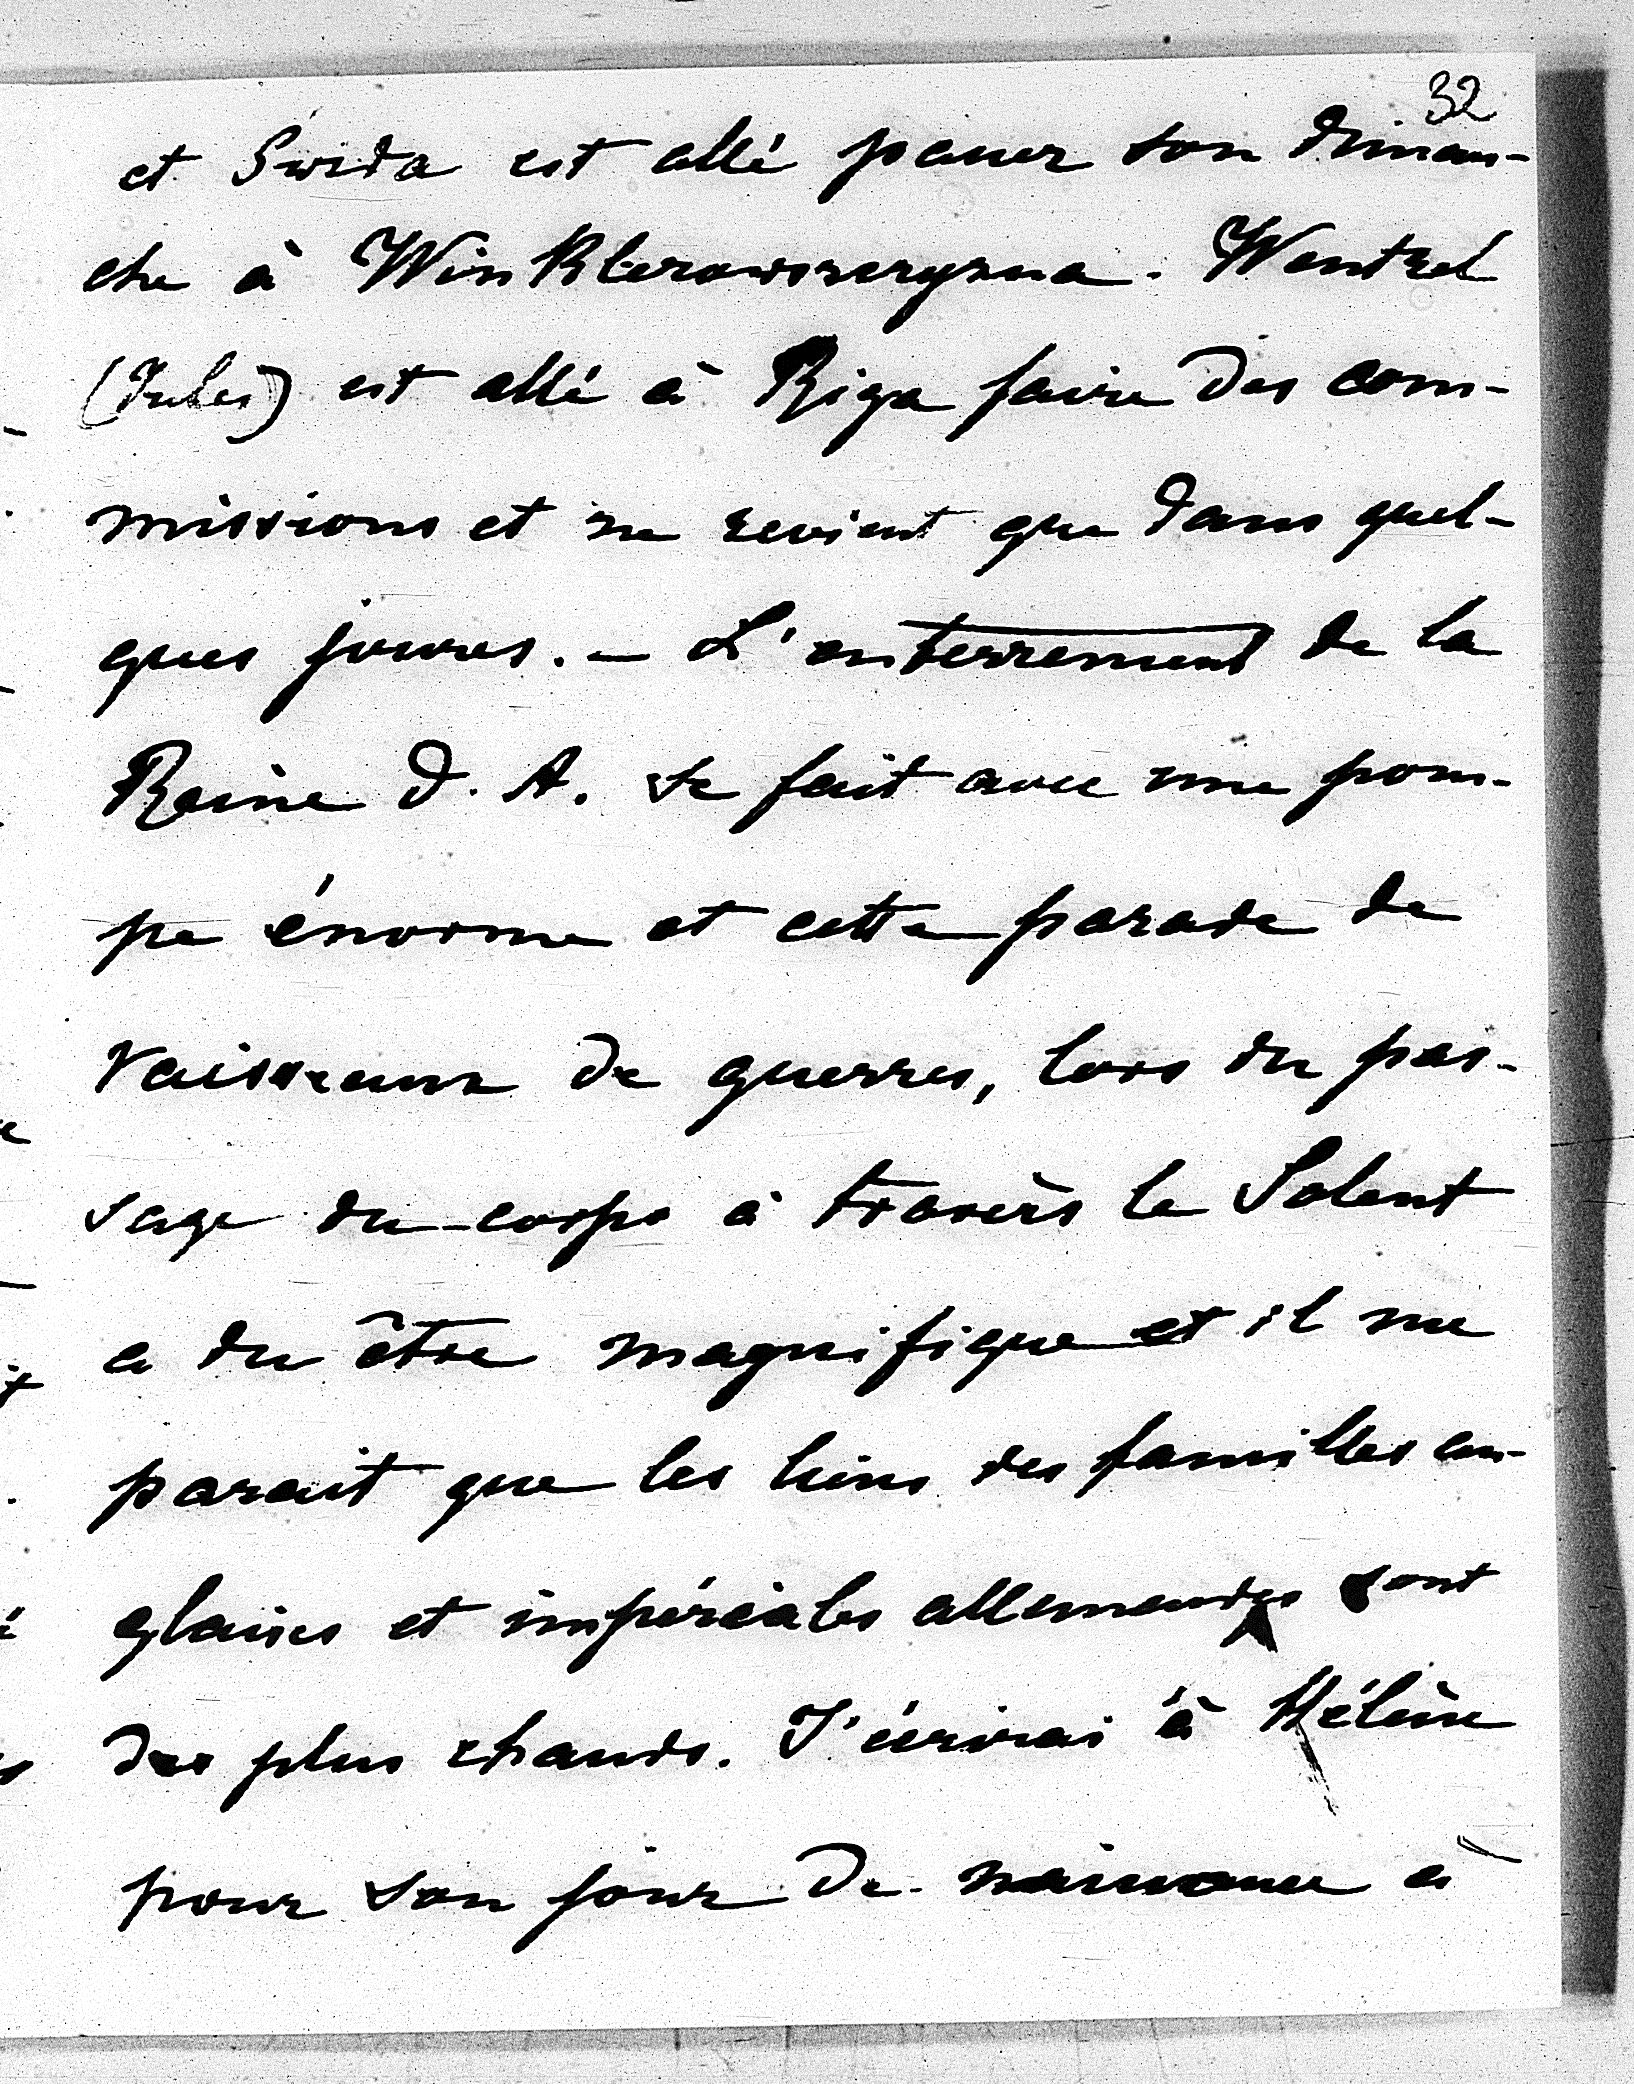 32
et Świda est allé passer son diman-
che à Winklerowszczyzna. Wentzel
(Jules) est allé à Riga faire des com-
missions et ne revient que dans quel-
ques jours. – L'enterrement de la
Reine d. A. se fait avec une pom-
pe énorme et cette parade de
vaisseaux de guerres, lors du pas-
sage du corps à travèrs le Solent
a du être magnifique et il me
parait que les liens des familles an-
glaises et impériales allemandes sont
des plus chauds. J'écrirai à Hélène
pour son jour de naissance à